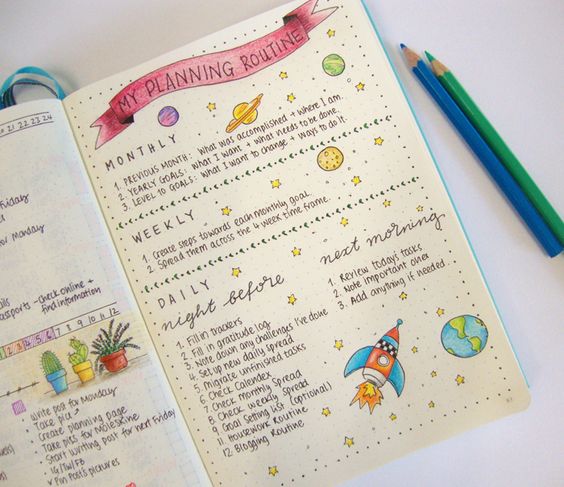 21 22 23 24
Friday
for Monday
- check online +
find information
7 8 9 10 11 12
Write post for Monday
Take pics
Create planning page
Take pics for Moleskine
Start writing post for next Friday
IG/TW/FB
Pin Post's pictures
MY PLANNING ROUTINE
MONTHLY
1. PREVIOUS MONTH: what was accomplished + where I am.
2. YEARLY GOALS: what I want + what needs to be done.
3. LEVEL 10 GOALS: what I want to change + ways to do it.
WEEKLY
1. Create steps towards each monthly goal.
2. Spread them across the 4 week time frame.
DAILY
night before
1. Fill in trackers
2. Fill in gratitude log
3. Write down any challenges I've done
4. Set up new daily spread
5. Migrate unfinished tasks
6. Check Calendex
7. Check monthly Spread
8. Check weekly Spread
9. Goal Setting List (optional)
11. Housework Routine
12. Blogging Routine
next morning
1. Review today's tasks
2. Note important ones
3. Add anything if needed